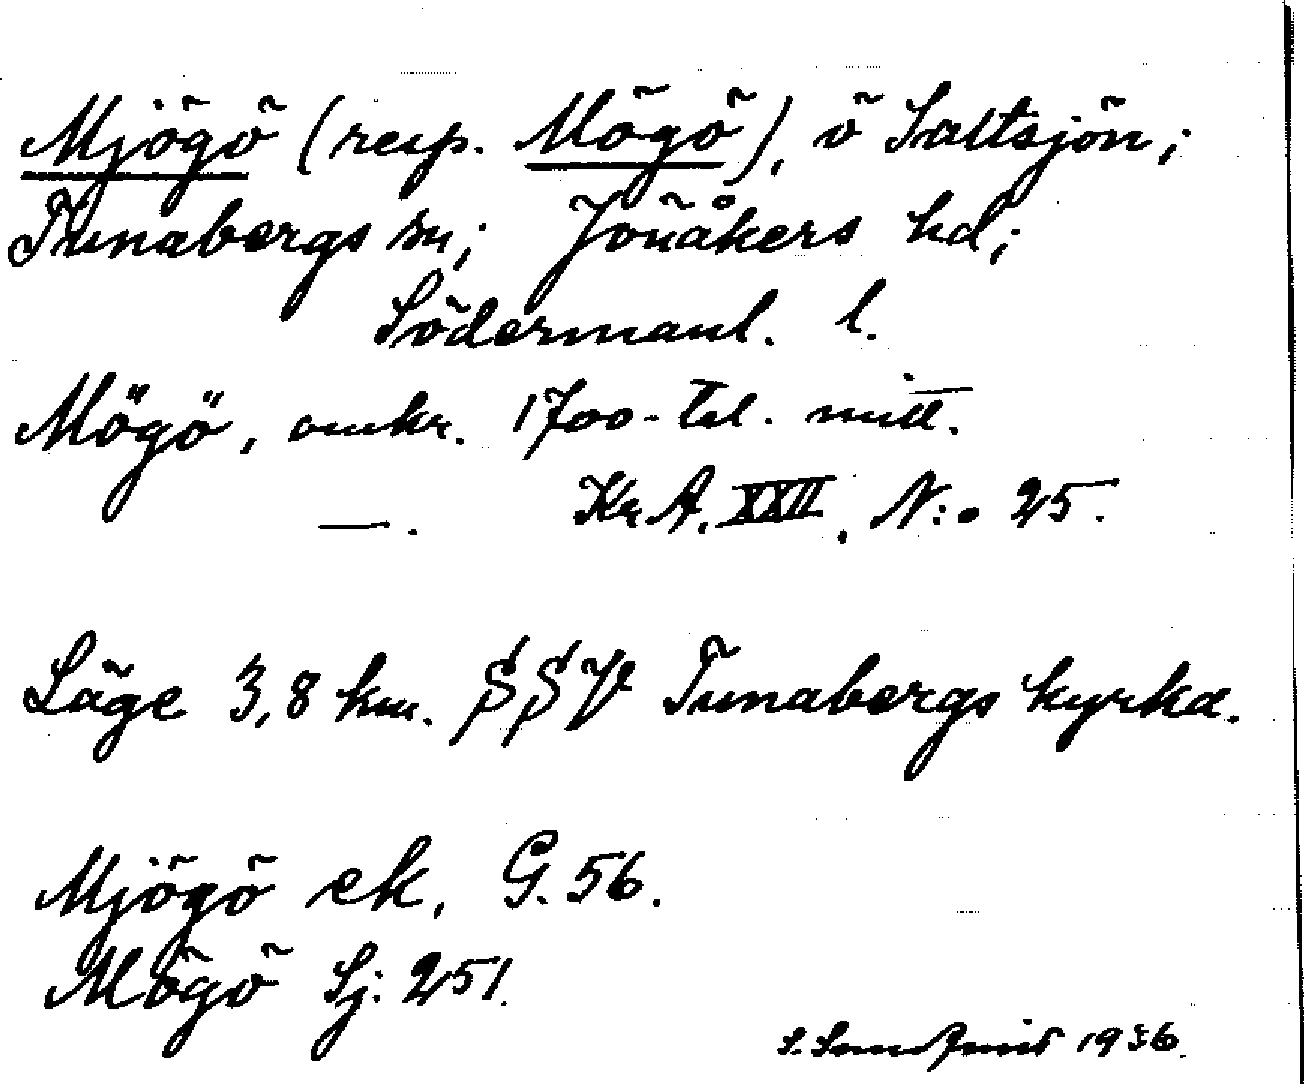 Mjögö (resp. Mögö), ö Saltsjön;
Tunabergs sn; Jönåkers hd;
Södermanl. l.
Mögö, omkr. 1700-tal. mitt.
—. Kr. A. XXII, N:o 25.
Läge 3,8 km. SSV Tunabergs kyrka.
Mjögö ek. G. 56.
Mögö Sj: 251.
S. 1936.